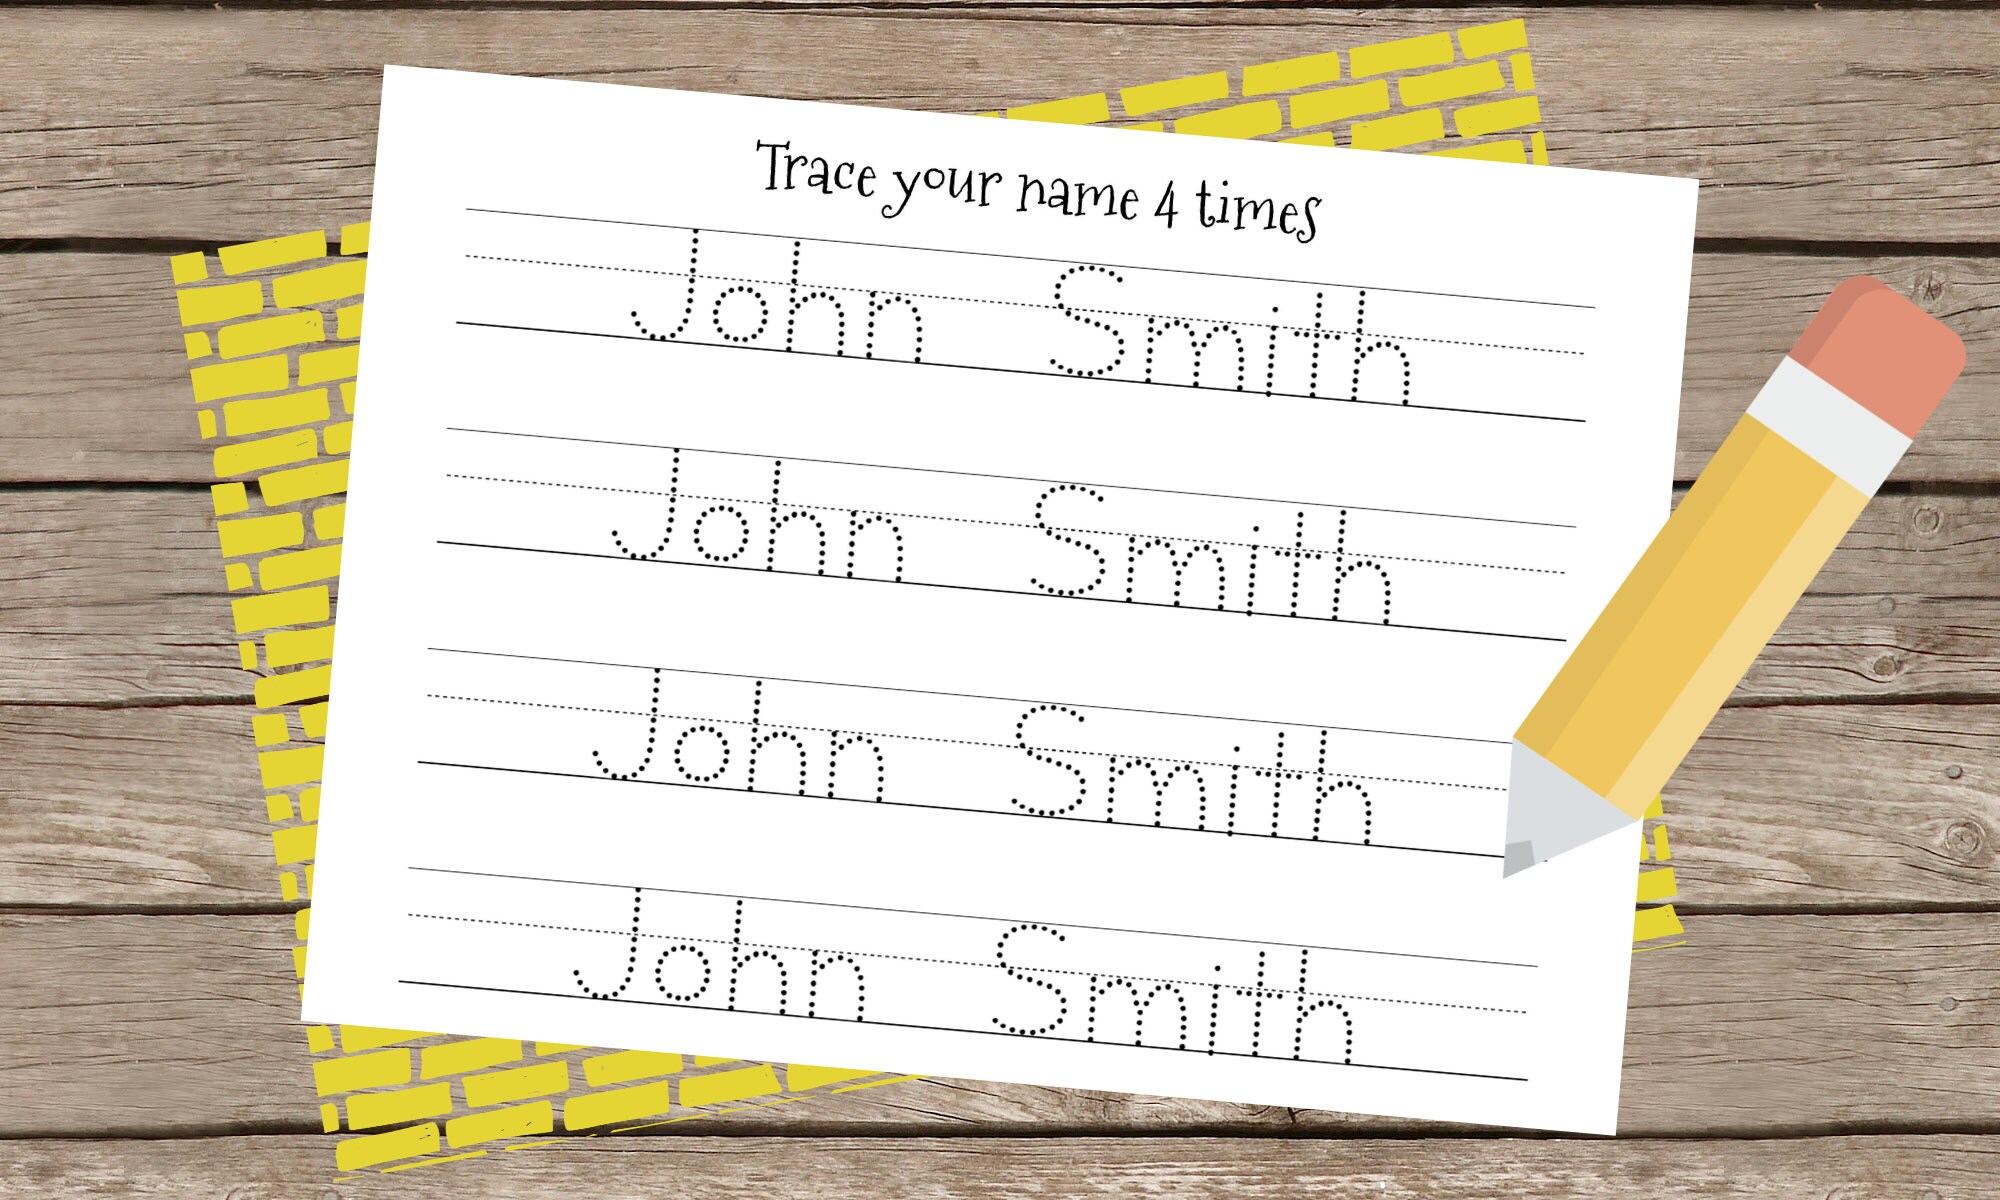 Trace your name 4 times
John Smith
John Smith
John Smith
John Smith